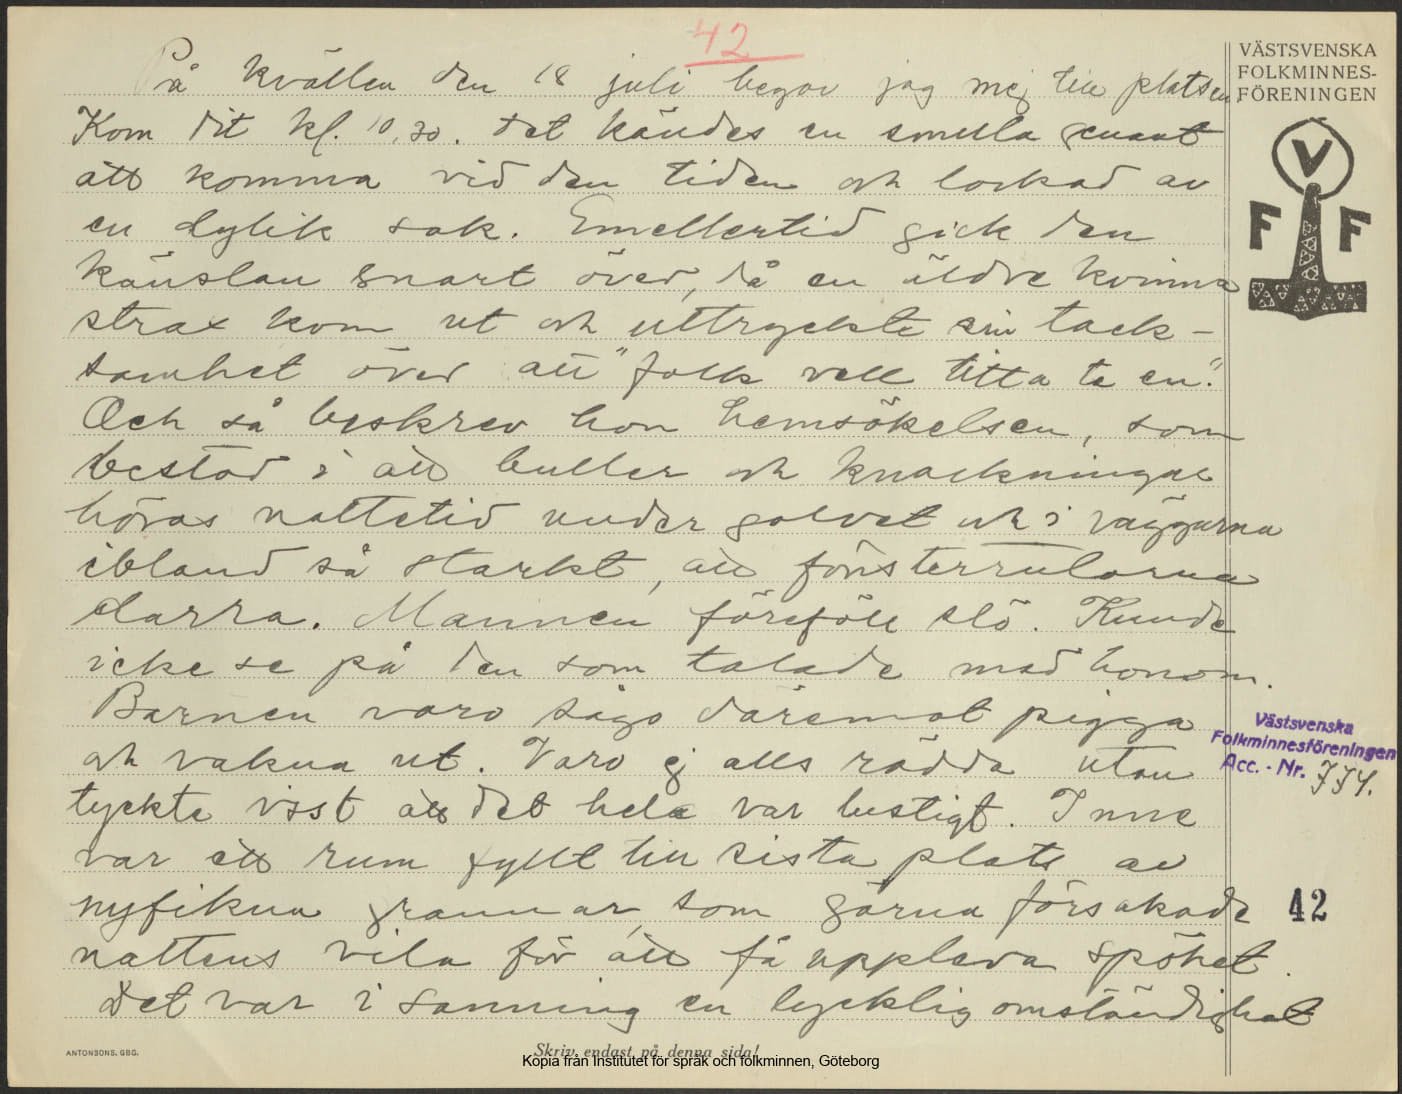 42
VÄSTSVENSKA
FOLKMINNES-
FÖRENINGEN
V
F F
På kvällen den 18 juli begav jag mej till platsen.
Kom dit kl. 10,30. Det kändes en smula genant
att komma vid den tiden och lockad av
en dylik sak. Emellertid gick den
känslan snart över, då en äldre kvinna
strax kom ut och uttryckte sin tack-
samhet över att "folk vell titta te en."
Och så beskrev hon hemsökelsen, som
bestod i att buller och knackningar
höras nattetid under golvet och i väggarna
ibland så starkt, att fönsterrutorna
darra. Mannen föreföll slö. Kunde
icke se på den som talade med honom.
Barnen voro sågo däremot pigga
och vakna ut. Voro ej alls rädda utan
tyckte visst att det hela var lustigt. Inne
var ett rum fyllt till sista plats av
nyfikna grannar, som gärna försakade
nattens vila för att få uppleva spöket.
Det var i sanning en lycklig omständighet
Västsvenska
Folkminnesföreningen
Acc. - Nr. 774.
42
ANTONSONS, GBG.
Skriv endast på denna sida!
Kopia från Institutet för språk och folkminnen, Göteborg